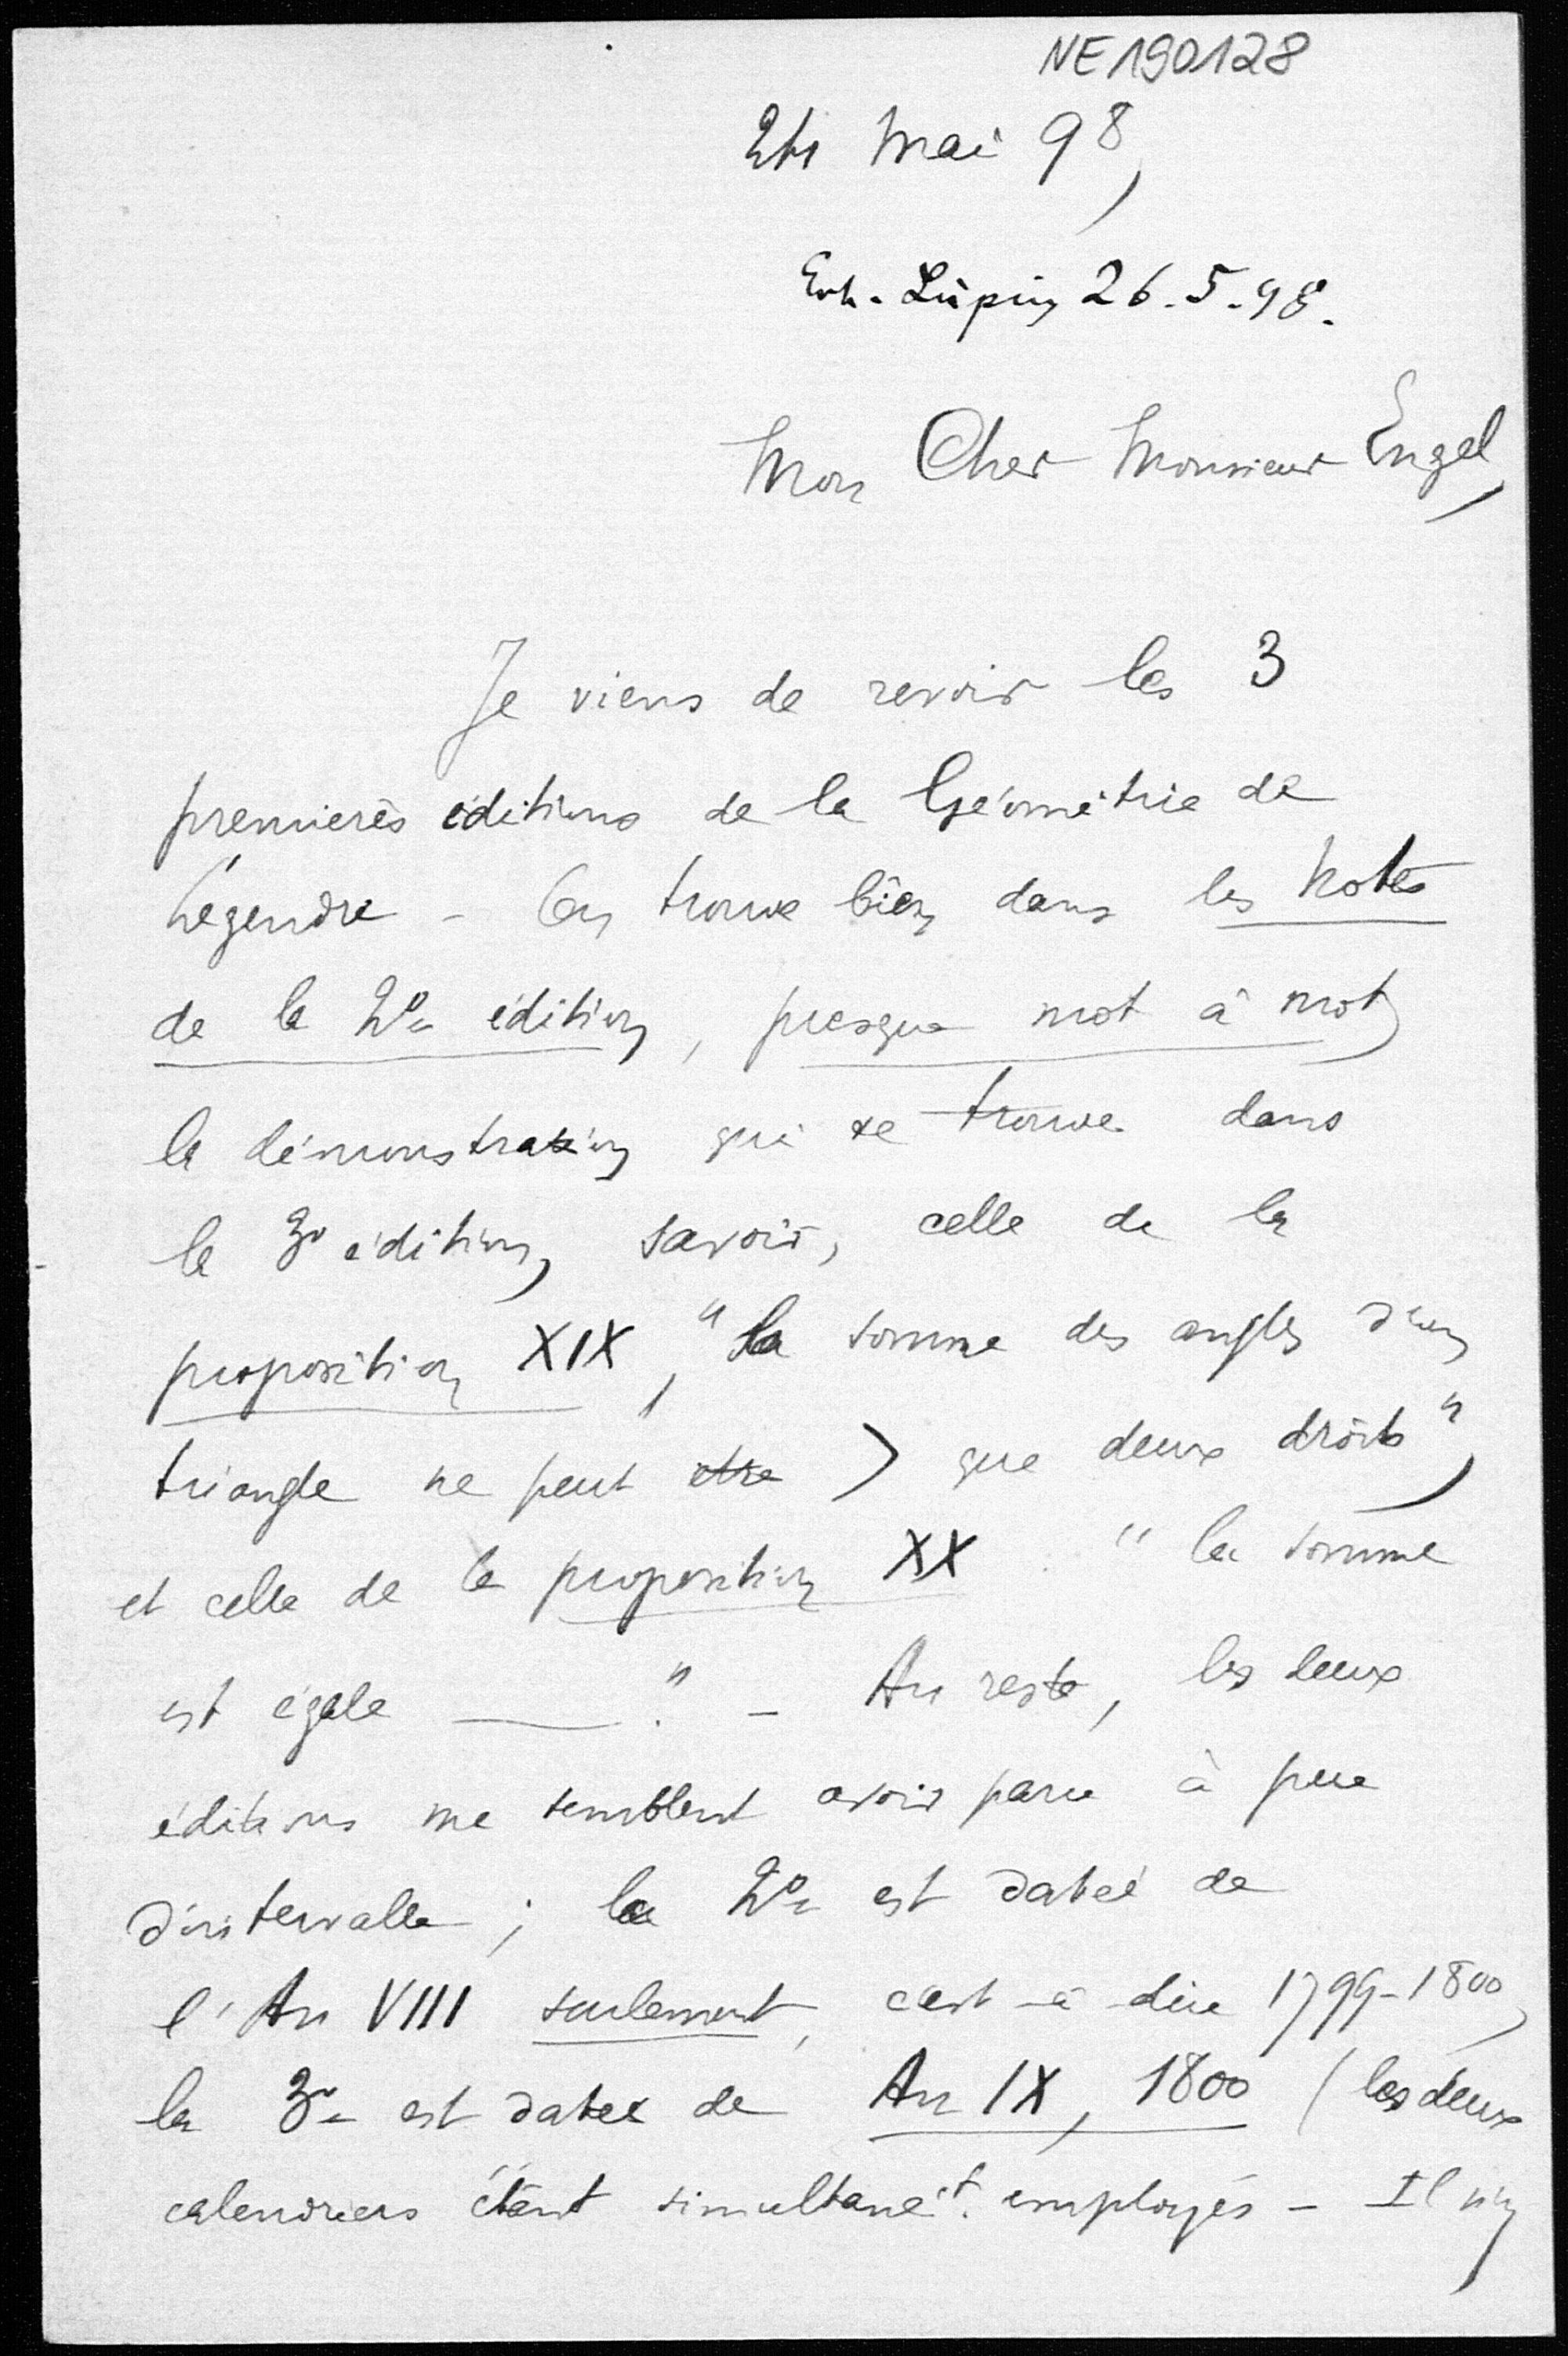 NE190128
24 Mai 98,
Erh. Leipzig 26.5.98.
Mon Cher Monsieur Engel,
Je viens de revoir les 3
premières éditions de la Géométrie de
Legendre – On trouve bien dans les Notes
de la 2de édition, presque mot à mot,
la démonstration qui se trouve dans
la 3e édition, savoir, celle de la
proposition XIX, "La somme des angles d'un
triangle ne peut être > que deux droits",
et celle de la proposition XX "la somme
est égale ——." – Au reste, les deux
éditions me semblent avoir paru à peu
d'intervalle ; la 2de est datée de
l'An VIII seulement, c'est-à-dire 1799-1800,
la 3e est datée de An IX, 1800 (les deux
calendriers étant simultanét. employés – Il n'y